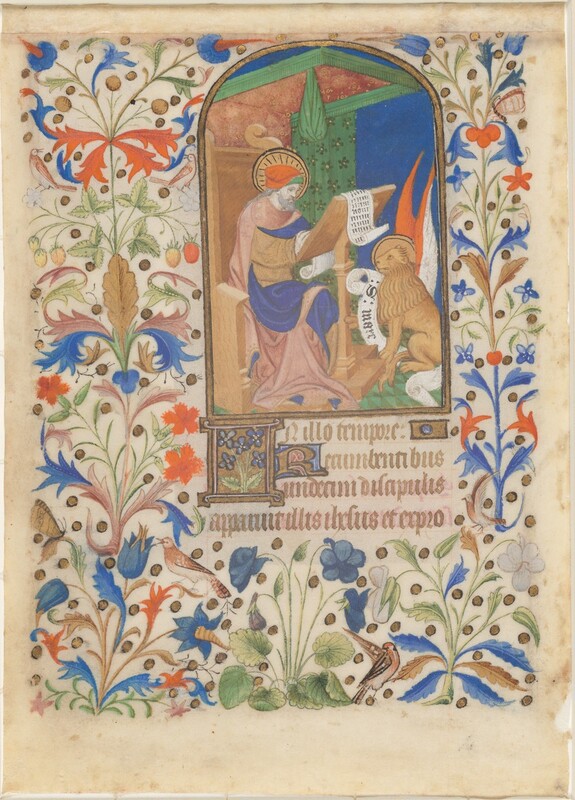 S: marc
In illo tempore.
Recumbentibus
undecim discipulis
apparuit illis ihesus et expro